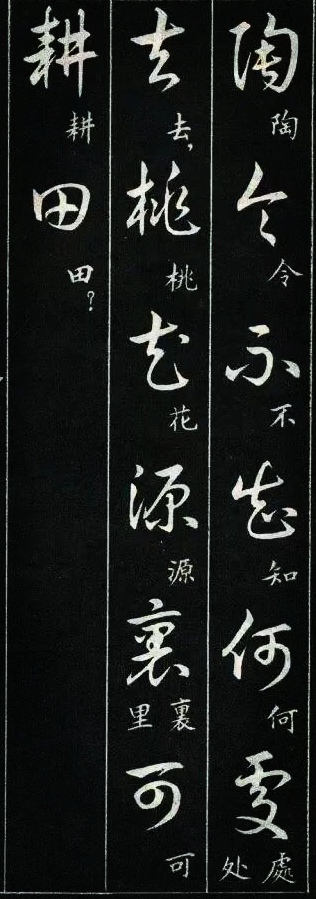 陶令不知何處
陶 令 不 知 何 處 处
去桃花源裏可
去， 桃 花 源 裏 里 可
耕田
耕 田？